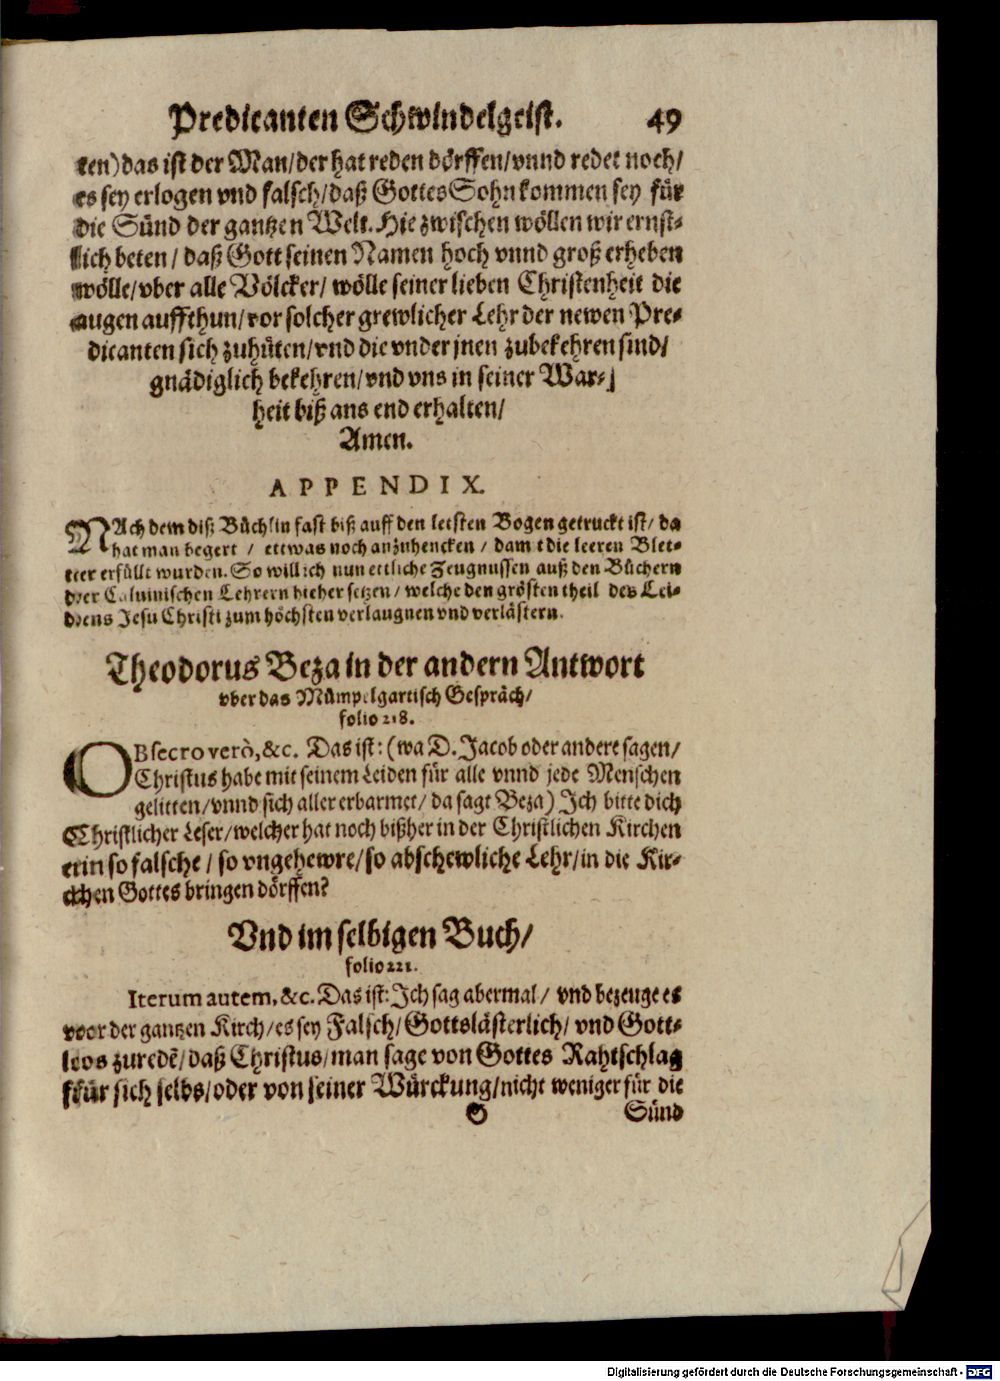 Predicanten Schwindelgeist. 49
ten) das ist der Man/der hat reden dörffen/vnnd redet noch/
es sey erlogen vnd falsch/daß Gottes Sohn kommen sey für
die Sünd der gantzen Welt. Hie zwischen wöllen wir ernst-
lich beten / daß Gott seinen Namen hoch vnnd groß erheben
wölle/vber alle Völcker/ wölle seiner lieben Christenheit die
augen auffthun/vor solcher grewlicher Lehr der newen Pre-
dicanten sich zuhüten/vnd die vnder jnen zubekehren sind/
gnädiglich bekehren/vnd vns in seiner War-
heit biß ans end erhalten/
Amen.
APPENDIX.
NAch dem diß Büchlin fast biß auff den letsten Bogen getruckt ist/ da
hat man begert / ettwas noch anzuhencken / damit die leeren Blet-
ter erfüllt wurden. So will ich nun ettliche Zeugnussen auß den Büchern
der Caluinischen Lehrern hieher setzen / welche den grösten theil des Lei-
dens Jesu Christi zum höchsten verlaugnen vnd verlästern.
Theodorus Beza in der andern Antwort
vber das Mümpelgartisch Gespräch/
folio 218.
OBsecro verò,&c. Das ist: (wa D. Jacob oder andere sagen/
Christus habe mit seinem Leiden für alle vnnd jede Menschen
gelitten/vnnd sich aller erbarmet/ da sagt Beza) Ich bitte dich
Christlicher Leser/welcher hat noch bißher in der Christlichen Kirchen
ein so falsche / so vngehewre/so abschewliche Lehr/in die Kir-
chen Gottes bringen dörffen?
Vnd im selbigen Buch/
folio 221.
Iterum autem, &c. Das ist: Ich sag abermal/ vnd bezeuge es
vor der gantzen Kirch/es sey Falsch/Gottslästerlich/ vnd Gott-
los zuredē/daß Christus/man sage von Gottes Rahtschlag
für sich selbs/oder von seiner Würckung/nicht weniger für die
G Sünd
Digitalisierung gefördert durch die Deutsche Forschungsgemeinschaft - DFG